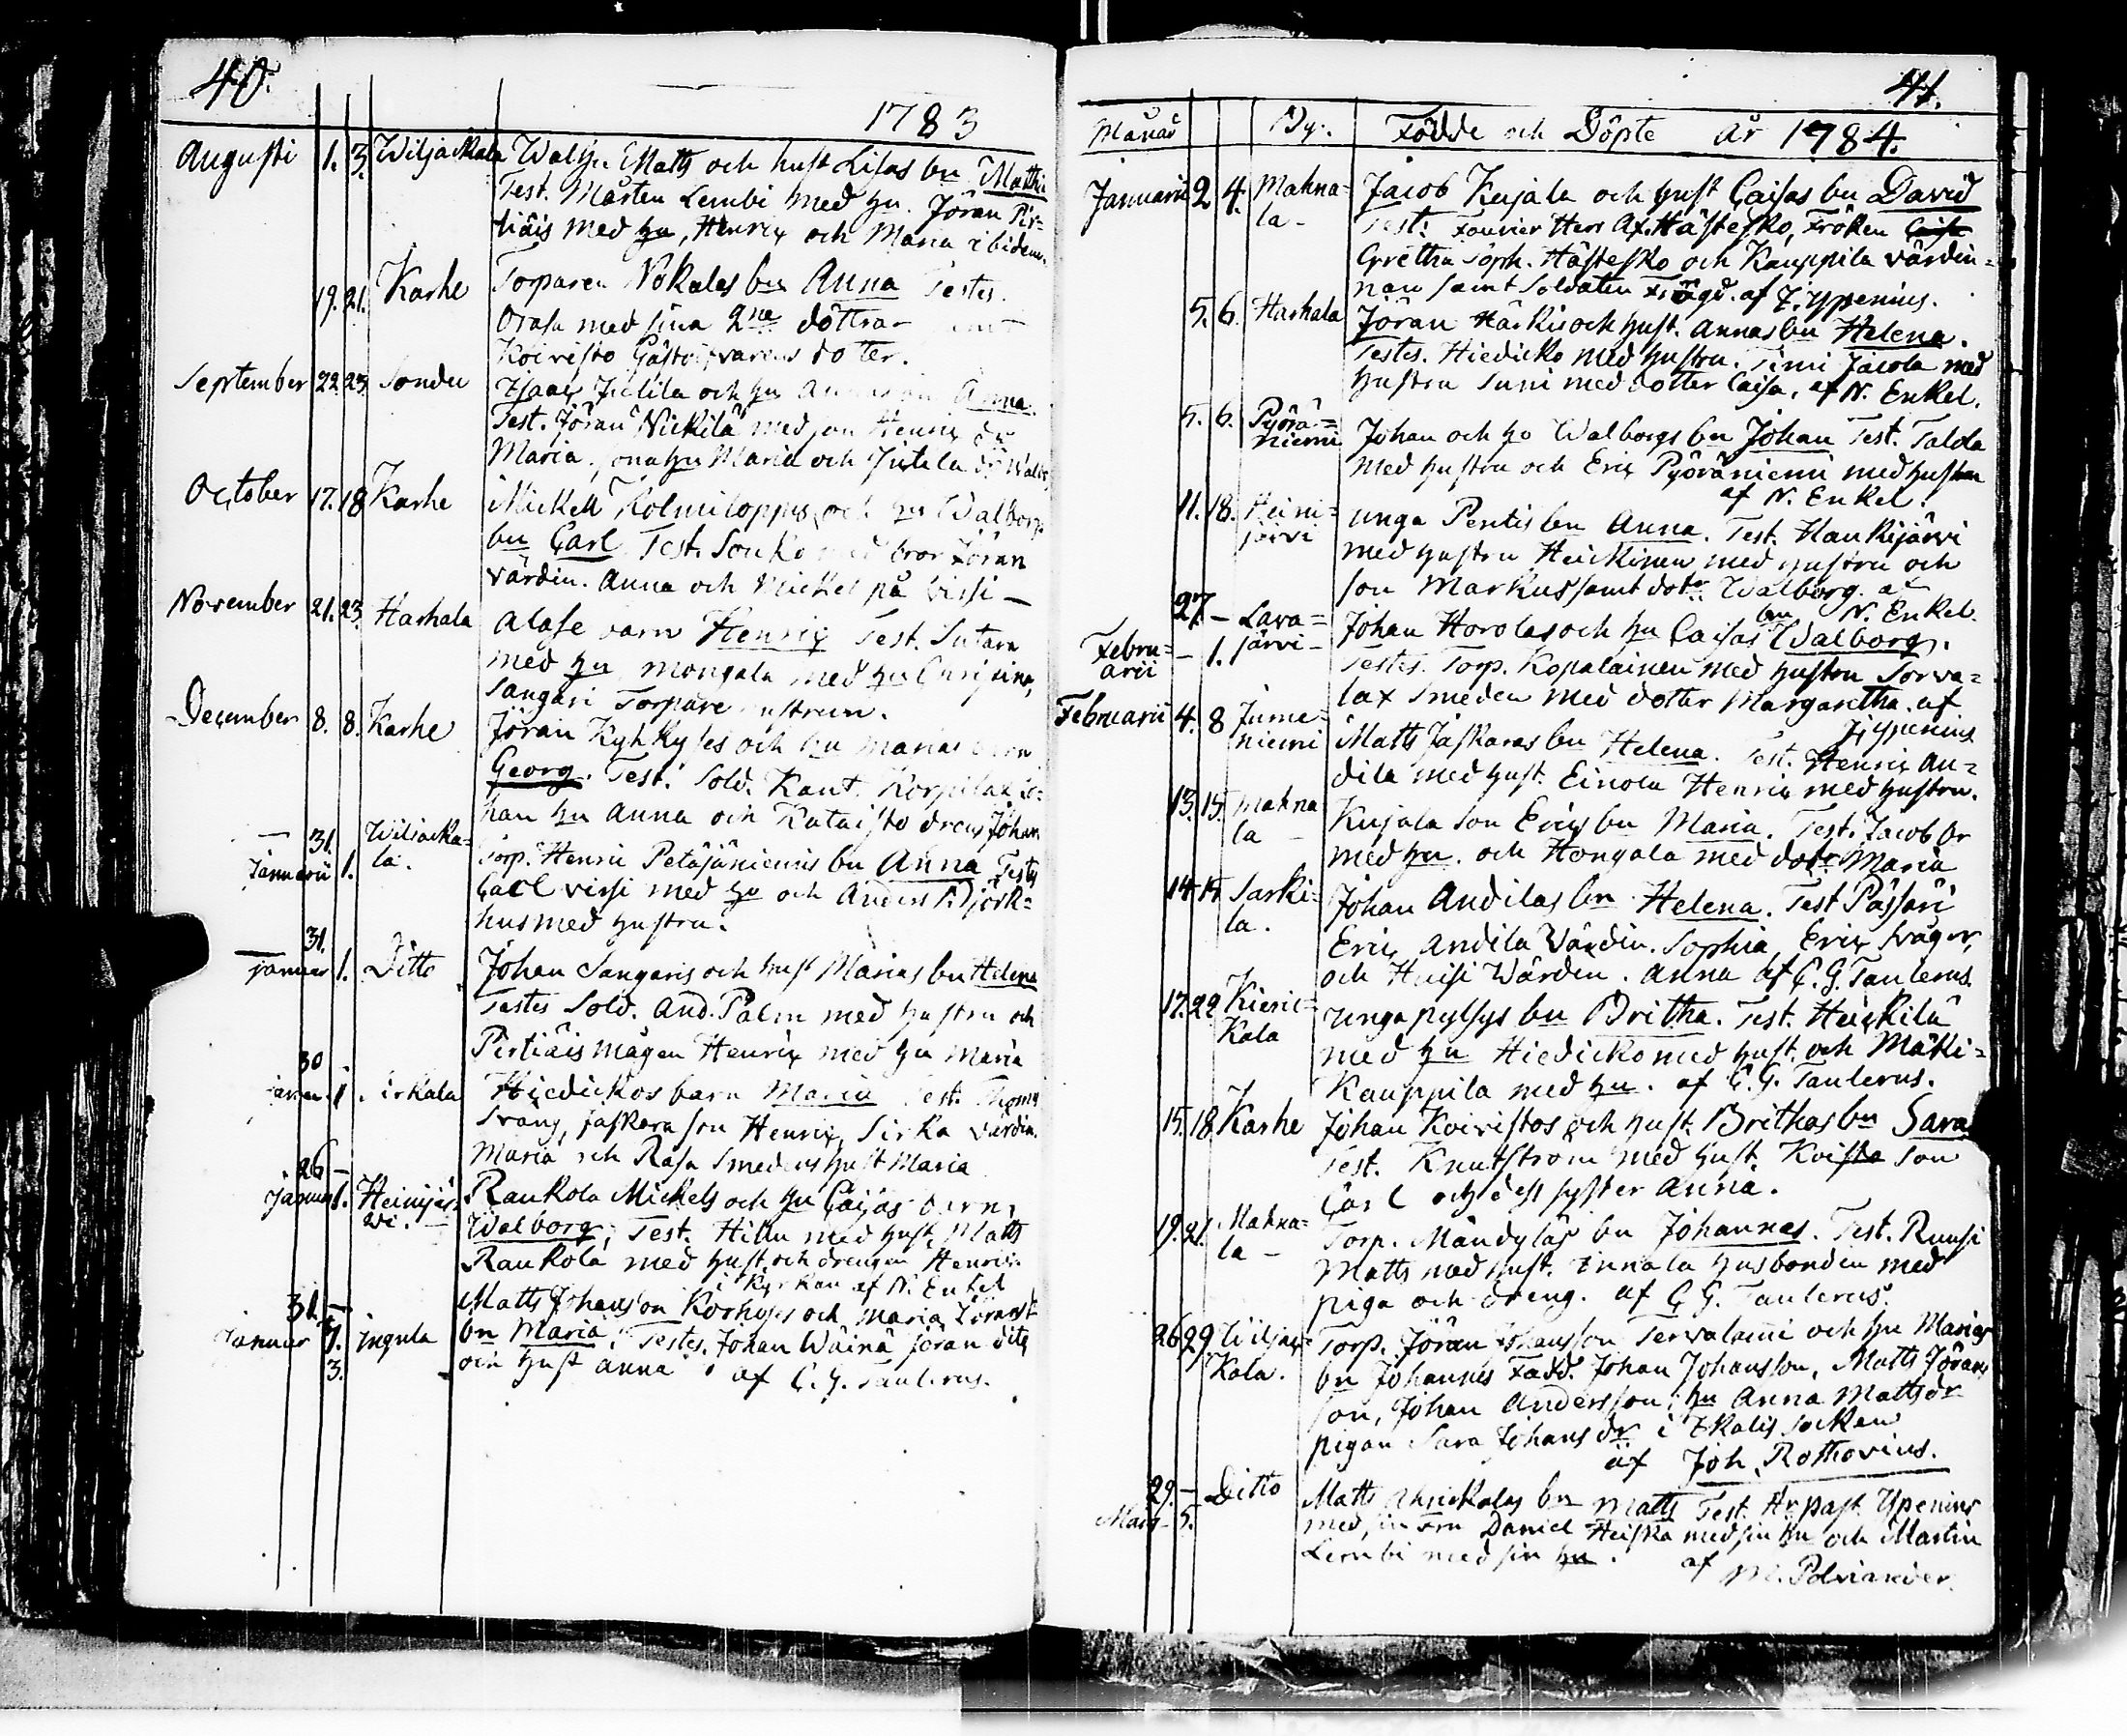 40.
1783
Augusti 1. 3. Wiljackala Walju Matts och hust Lisas bn Matthi
Test. Mårten Lembi med hu. Jöran Pir-
tiäis med hu, Henrix och Maria ibidem.
19. 21. Karhe Torparen Nokales bn Anna Testes.
Orasa med sina 2ne döttrar samt
Koivisto Gästgifvarens doter.
September 22 23 Sondu Isaac Julila och hu Anna
Test. Jöran Nickilä med son Henrix dr
Maria, sona hu Maria och Jutila dr Walb.
October 17. 18 Karhe Mickell Kolmiloppis och hu Walborgs
bn Carl Test. Souko med bror Jöran
värdin. Anna och Mickel på virsi –
November 21. 23. Harhala Alase barn Henrix Test. Sutara
med hu mongala med hu Christina,
Sangari Torpare hustrun.
December 8. 8. Karhe Jöran Kyhkyses och hu Marias barn
Georg. Test. Sold. Kant. Korpilax Jo-
han hu Anna och Rataisto dreng Johan
— 31. Wiljacka- Torp. Henric Petäjäniemis bn Anna Testes
Januarii 1. la. Carl virsi med hu och Anders Björk-
hus med hustru.
31.
Januar 1. Ditto Johan Sangaris och hust Marias bn Helena
Testes Sold. And. Palm med hustru och
Pirtiäis mågen Henrix med hu Maria
30
Januar. 1. Sirkala Hiedickos barn Maria Test. Thoms
Svang, Jaskara son Henrix, Sirka värdin.
Maria och Rasa Smedens hust Maria
26 –
Januar 1. Heinijär- Raukola Mickels och hu Caisas barn
vi. Walborg; Test. Hillu med hust. Matts
Raukola med hust. och drengen Henric.
i Kyrkan af N. Enkel
31. – Matts Johansson Korhoses och Maria Jöransd:
Januar 1. Ingula bn Maria. Testes. Johan Wäinä Jöran dito
3. och hust Anna af C. G. Taulerus.
41.
Månad By. Födde och Döpte År 1784.
Januarii 2 4. Mahna- Jacob Kujala och hust Caisas bn David
la – Test: Fourier Herr Ax. Hästesko, Fröken Caisa
Gretha Soph. Hästesko och Kauppila värdin-
nan samt Soldaten Frögd. af J. Yppenius.
5. 6. Harhala Jöran Härkis och hust. Annas bn Helena.
Testes. Hiedicko med hustru. Timi Jacola med
hustru Suni med dotter Caisa, af N. Enkel.
5. 6. Pyörä- Johan och hu Walborgs bn Johan Test. Talola
niemi med hustru och Eric Pyöräniemi med hustru
af N. Enkel.
11. 18. Heini- unga Pentis bn Anna. Test. Haukijärvi
järvi med hustru Heickinen med hustru och
son Markus samt dotr. Walborg. af
N. Enkel.
27. – Lava- Johan Horolas och hu Caisas bn Walborg.
Febru- – 1. järvi – Testes. Torp. Kopalainen med hustru Sorva-
arii lax Smeden med dotter Margaretha. af
J. Yppenius
Februarii 4. 8 Jume- Matts Jaskaras bn Helena. Test. Henrix An-
niemi dila med hust. Einola Henrix med hustru.
13. 15. Mahna Kujala son Erics bn Maria. Test. Jacob br
la – med hu. och Hongala med dotr Maria
14. 15 Sarki- Johan Andilas bn Helena. Test Pässäri
la. Eric, Andila Värdin. Sophia, Eric svåger,
och Huisi Wärdin. Anna af C. G. Taulerus.
17. 22 Kieric- unga pylsys bn Britha. Test. Heickilä
Kala med hu Hiedicko med hust. och Mäki-
Kauppila med hu. af C. G. Taulerus.
15. 18 Karhe Johan Koivistos och hust. Brithas bn Sara
Test. Knutstrom med hust. Koisto son
Carl och dess syster Anna.
19. 21. Mahna- Torp. Mändyläs bn Johannes. Test. Ruusi
la – Matts med hust. Innala husbonden med
piga och dreng. af C. G. Taulerus.
26 29. Wiljac- Torp. Jöran Johansson Tervalami och hu Marias
Kala. bn Johannes Fadd. Johan Johansson, Matts Jörans
son, Johan Andersson; hu Anna Mattsdr
pigan Sara Johansdr i Ikalis socken
af Joh. Rothovius.
29. – Ditto Matts Ahrickalas bn Matts Test. Hr past. Ypenius
Mars 5. med sin Fru Daniel Heiska med sin hu och Martin
Lembi med sin hu. af
M. Polviander.